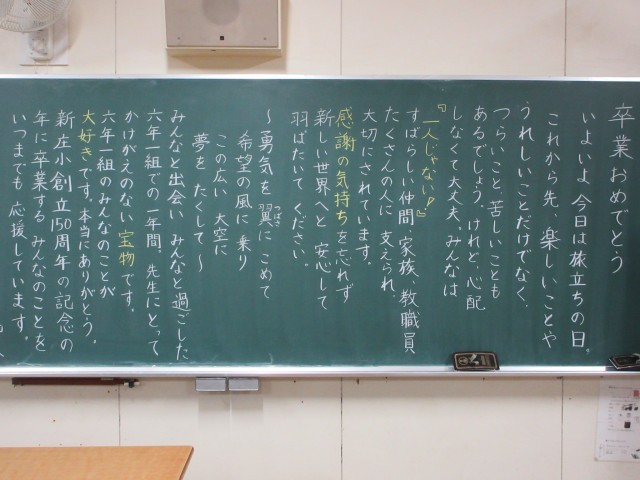 卒業おめでとう
いよいよ今日は旅立ちの日。
これから先、楽しいことや
うれしいことだけでなく、
つらいこと、苦しいことも
あるでしょう。けれど、心配
しなくて大丈夫。みんなは
『一人じゃない!』
すばらしい仲間、家族、教職員
たくさんの人に支えられ、
大切にされています。
感謝の気持ちを忘れず
新しい世界へと 安心して
羽ばたいてください。
～勇気を翼にこめて
つばさ
希望の風に乗り
この広い 大空に
夢を たくして～
みんなと出会い みんなと過ごした
六年一組での一年間。先生にとって
かけがえのない宝物です。
六年一組のみんなのことが
大好きです。本当にありがとう。
新庄小創立150周年の記念の
年に卒業する みんなのことを
いつまでも 応援しています。